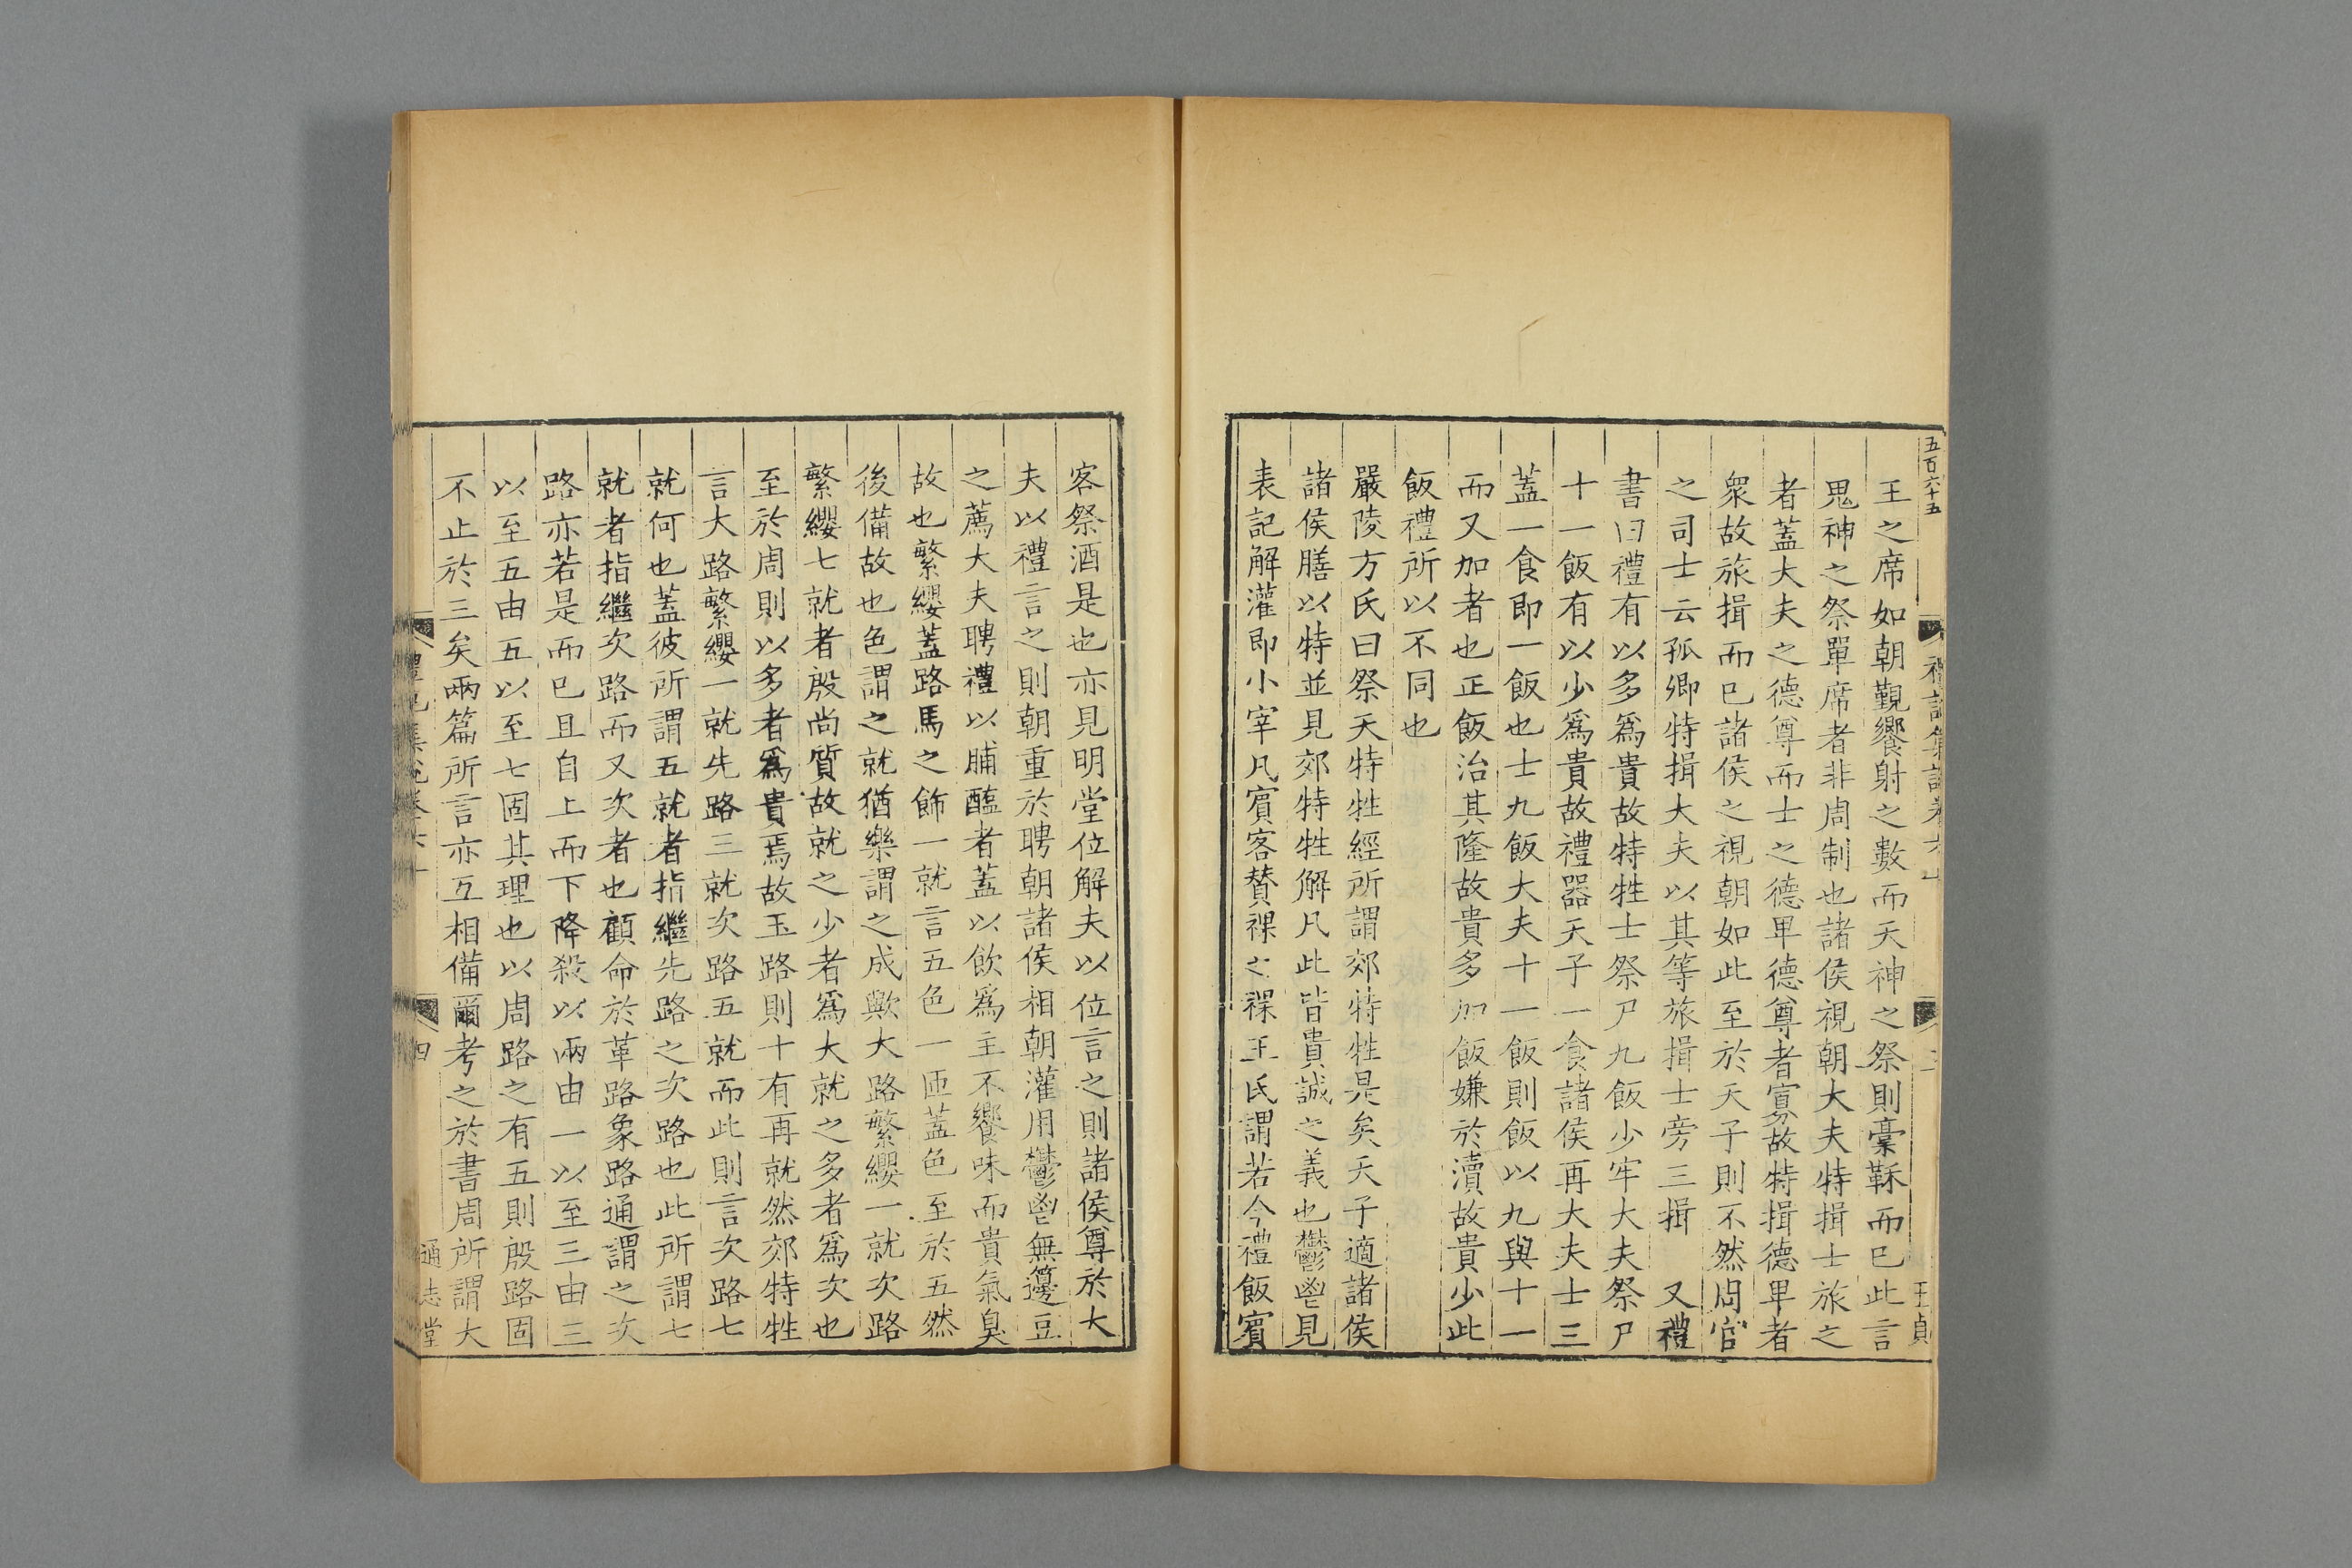 五百六十五
王之席如朝覲饗射之數而天神之祭則稾鞂而已此言
鬼神之祭單席者非周制也諸侯視朝大夫特揖士旅之
者蓋大夫之德尊而士之德卑德尊者寡故特揖德卑者
衆故旅揖而已諸侯之視朝如此至於天子則不然周官
之司士云孤卿特揖大夫以其等旅揖士旁三揖 又禮
書曰禮有以多爲貴故特牲士祭尸九飯少牢大夫祭尸
十一飯有以少爲貴故禮器天子一食諸侯再大夫士三
蓋一食即一飯也士九飯大夫十一飯則飯以九與十一
而又加者也正飯治其隆故貴多加飯嫌於瀆故貴少此
飯禮所以不同也
嚴陵方氏曰祭天特牲經所謂郊特牲是矣天子適諸侯
諸侯膳以特並見郊特牲解凡此皆貴誠之義也鬱鬯見
表記解灌即小宰凡賓客贊祼之祼王氏謂若今禮飯賓
禮記集說卷六十
王貞
客祭酒是也亦見明堂位解夫以位言之則諸侯尊於大
夫以禮言之則朝重於聘朝諸侯相朝灌用鬱鬯無籩豆
之薦大夫聘禮以脯醢者蓋以飲爲主不饗味而貴氣臭
故也繁纓蓋路馬之飾一就言五色一匝蓋色至於五然
後備故也色謂之就猶樂謂之成歟大路繁纓一就次路
繁纓七就者殷尚質故就之少者爲大就之多者爲次也
至於周則以多者爲貴焉故玉路則十有再就然郊特牲
言大路繁纓一就先路三就次路五就而此則言次路七
就何也蓋彼所謂五就者指繼先路之次路也此所謂七
就者指繼次路而又次者也顧命於革路象路通謂之次
路亦若是而已且自上而下降殺以兩由一以至三由三
以至五由五以至七固其理也以周路之有五則殷路固
不止於三矣兩篇所言亦互相備爾考之於書周所謂大
禮記集說卷六十
四
通志堂